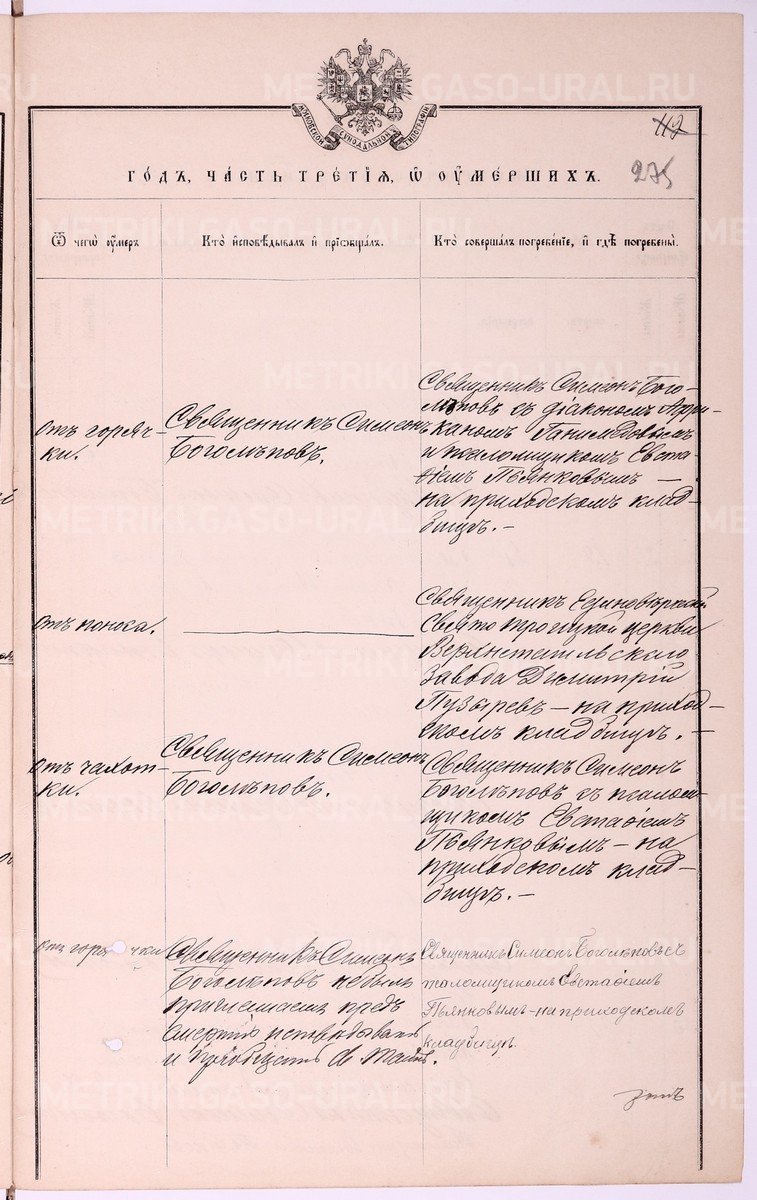 МОСКОВСКОЙ СѴНОДАЛЬНОЙ ТИПОГРАФІИ
112
275
ГОДЪ, ЧАСТЬ ТРЕТІЯ, Ѡ ОУМЕРШИХЪ.
Ѿ чегѡ оумеръ
Кто исповѣдывалъ и пріѡбщалъ.
Кто совершалъ погребеніе, и гдѣ погребены.
отъ горяч-
ки.
Священникъ Симеонъ
Боголѣповъ.
Священникъ Симеонъ Бого-
лѣповъ съ діакономъ Афри-
каномъ Ганимедовымъ
и псаломщикомъ Евста-
ѳіемъ Пьянковымъ —
на приходскомъ клад-
бищѣ. —
отъ поноса.
Священникъ Единовѣрческ.
Свято Троицкой церкви
Верхнетагильскаго
завода Димитрій
Пузыревъ — на приход-
скомъ кладбищѣ. —
отъ чахот-
ки.
Священникъ Симеонъ
Боголѣповъ.
Священникъ Симеонъ
Боголѣповъ съ псалом-
щикомъ Евстаѳіемъ
Пьянковымъ — на
приходскомъ клад-
бищѣ. —
отъ горячки
Священникъ Симеонъ
Боголѣповъ небылъ
приглашаемъ предъ
смертію исповѣдывать
и пріобщать Св. Таинъ.
Священникъ Симеонъ Боголѣповъ съ
псаломщикомъ Евстаѳіемъ
Пьянковымъ — на приходскомъ
кладбищѣ.
METRIKI.GASO-URAL.RU